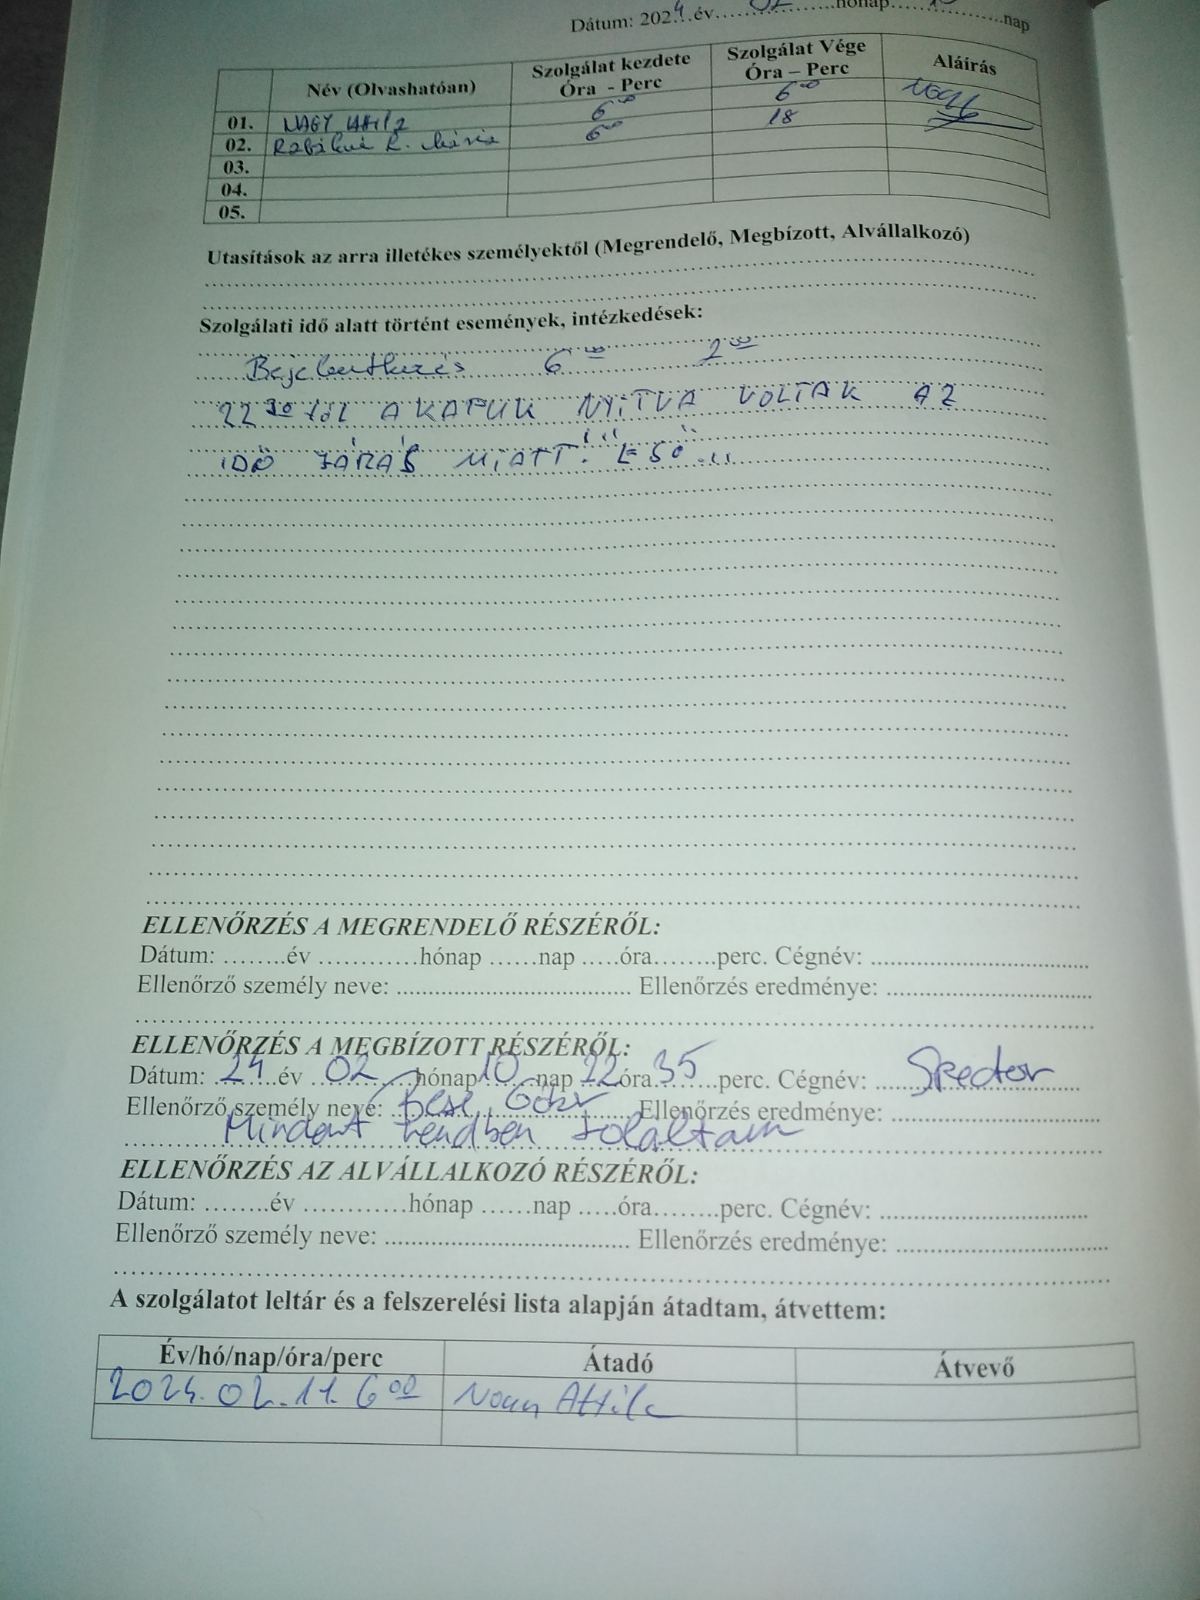 Dátum: 2024.év........02........hónap...............nap
Név (Olvashatóan) Szolgálat kezdete Óra - Perc Szolgálat Vége Óra – Perc Aláírás
01. NAGY Attila 6 00 6 00 Nagy
02. R. Mária 6 00 18
03.
04.
05.
Utasítások az arra illetékes személyektől (Megrendelő, Megbízott, Alvállalkozó)
Szolgálati idő alatt történt események, intézkedések:
Bejelentkezés 6 00 2 00
22 30 tól A KAPUK NYITVA VOLTAK AZ
IDŐ JÁRÁS MIATT! "ESŐ"
ELLENŐRZÉS A MEGRENDELŐ RÉSZÉRŐL:
Dátum: ........év ............hónap ......nap .....óra........perc. Cégnév: ................................
Ellenőrző személy neve: .................................. Ellenőrzés eredménye: ..............................
ELLENŐRZÉS A MEGBÍZOTT RÉSZÉRŐL:
Dátum: 24 év 02 hónap 10 nap 22 óra 35 perc. Cégnév: Spector
Ellenőrző személy neve: Bese Ellenőrzés eredménye: ...................
Mindent rendben találtam
ELLENŐRZÉS AZ ALVÁLLALKOZÓ RÉSZÉRŐL:
Dátum: ........év ............hónap ......nap .....óra........perc. Cégnév: ..............................
Ellenőrző személy neve: .................................... Ellenőrzés eredménye: ...............................
A szolgálatot leltár és a felszerelési lista alapján átadtam, átvettem:
Év/hó/nap/óra/perc Átadó Átvevő
2024. 02. 11. 6 00 Nagy Attila